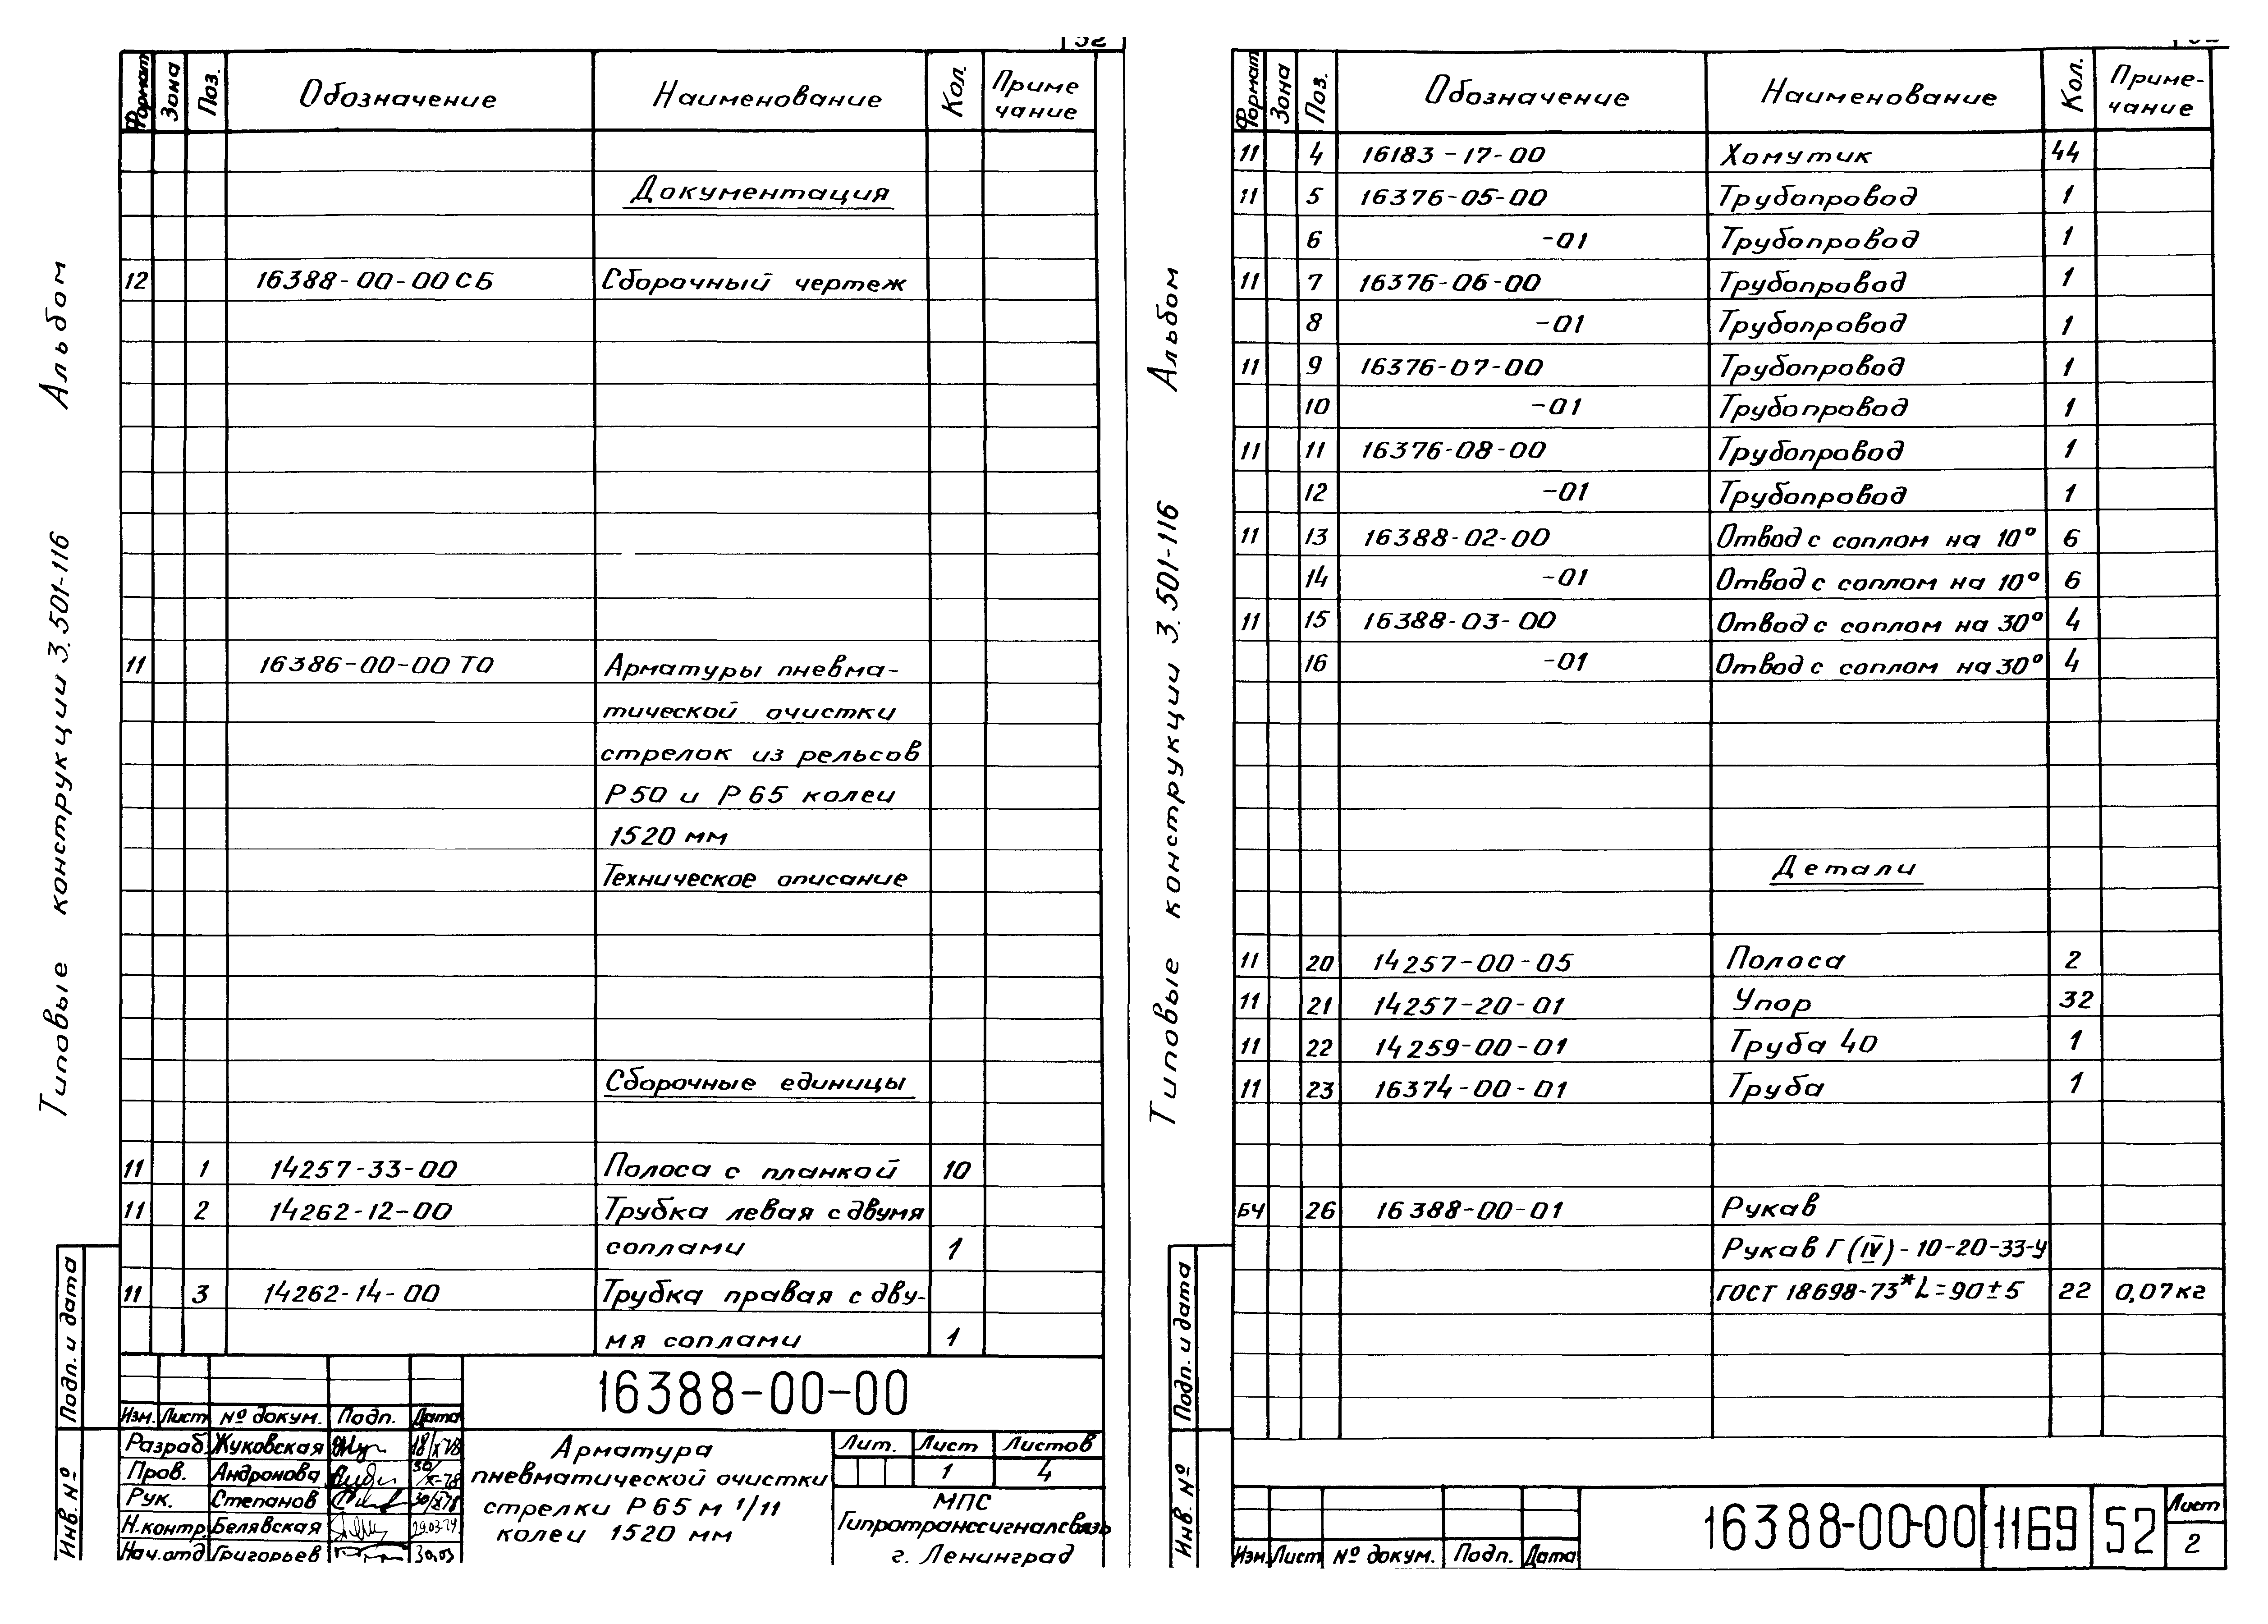 52
Формат Зона Поз. Обозначение Наименование Кол. Приме
чание
Документация
12 16388-00-00 СБ Сборочный чертеж
11 16386-00-00 ТО Арматуры пневма-
тической очистки
стрелок из рельсов
Р50 и Р65 колеи
1520 мм
Техническое описание
Сборочные единицы
11 1 14257-33-00 Полоса с планкой 10
11 2 14262-12-00 Трубка левая с двумя
соплами 1
11 3 14262-14-00 Трубка правая с дву-
мя соплами 1
16388-00-00
Изм. Лист № докум. Подп. Дата
Разраб. Жуковская 18/X-78
Пров. Андронова 30/X-78
Рук. Степанов
Н.контр. Белявская 29.03.79
Нач.отд Григорьев 30.03
Арматура
пневматической очистки
стрелки Р65 м 1/11
колеи 1520 мм
Лит. Лист Листов
1 4
МПС
Гипротранссигналсвязь
г. Ленинград
Типовые конструкции 3.501-116 Альбом
Подп. и дата
Инв. №
Формат Зона Поз. Обозначение Наименование Кол. Приме-
чание
11 4 16183-17-00 Хомутик 44
11 5 16376-05-00 Трубопровод 1
6 -01 Трубопровод 1
11 7 16376-06-00 Трубопровод 1
8 -01 Трубопровод 1
11 9 16376-07-00 Трубопровод 1
10 -01 Трубопровод 1
11 11 16376-08-00 Трубопровод 1
12 -01 Трубопровод 1
11 13 16388-02-00 Отвод с соплом на 10° 6
14 -01 Отвод с соплом на 10° 6
11 15 16388-03-00 Отвод с соплом на 30° 4
16 -01 Отвод с соплом на 30° 4
Детали
11 20 14257-00-05 Полоса 2
11 21 14257-20-01 Упор 32
11 22 14259-00-01 Труба 40 1
11 23 16374-00-01 Труба 1
БЧ 26 16388-00-01 Рукав
Рукав Г (IV) - 10-20-33-У
ГОСТ 18698-73* L=90±5 22 0,07кг
Изм. Лист № докум. Подп. Дата
16388-00-00 1169 52 Лист
2
Типовые конструкции 3.501-116 Альбом
Подп. и дата
Инв. №